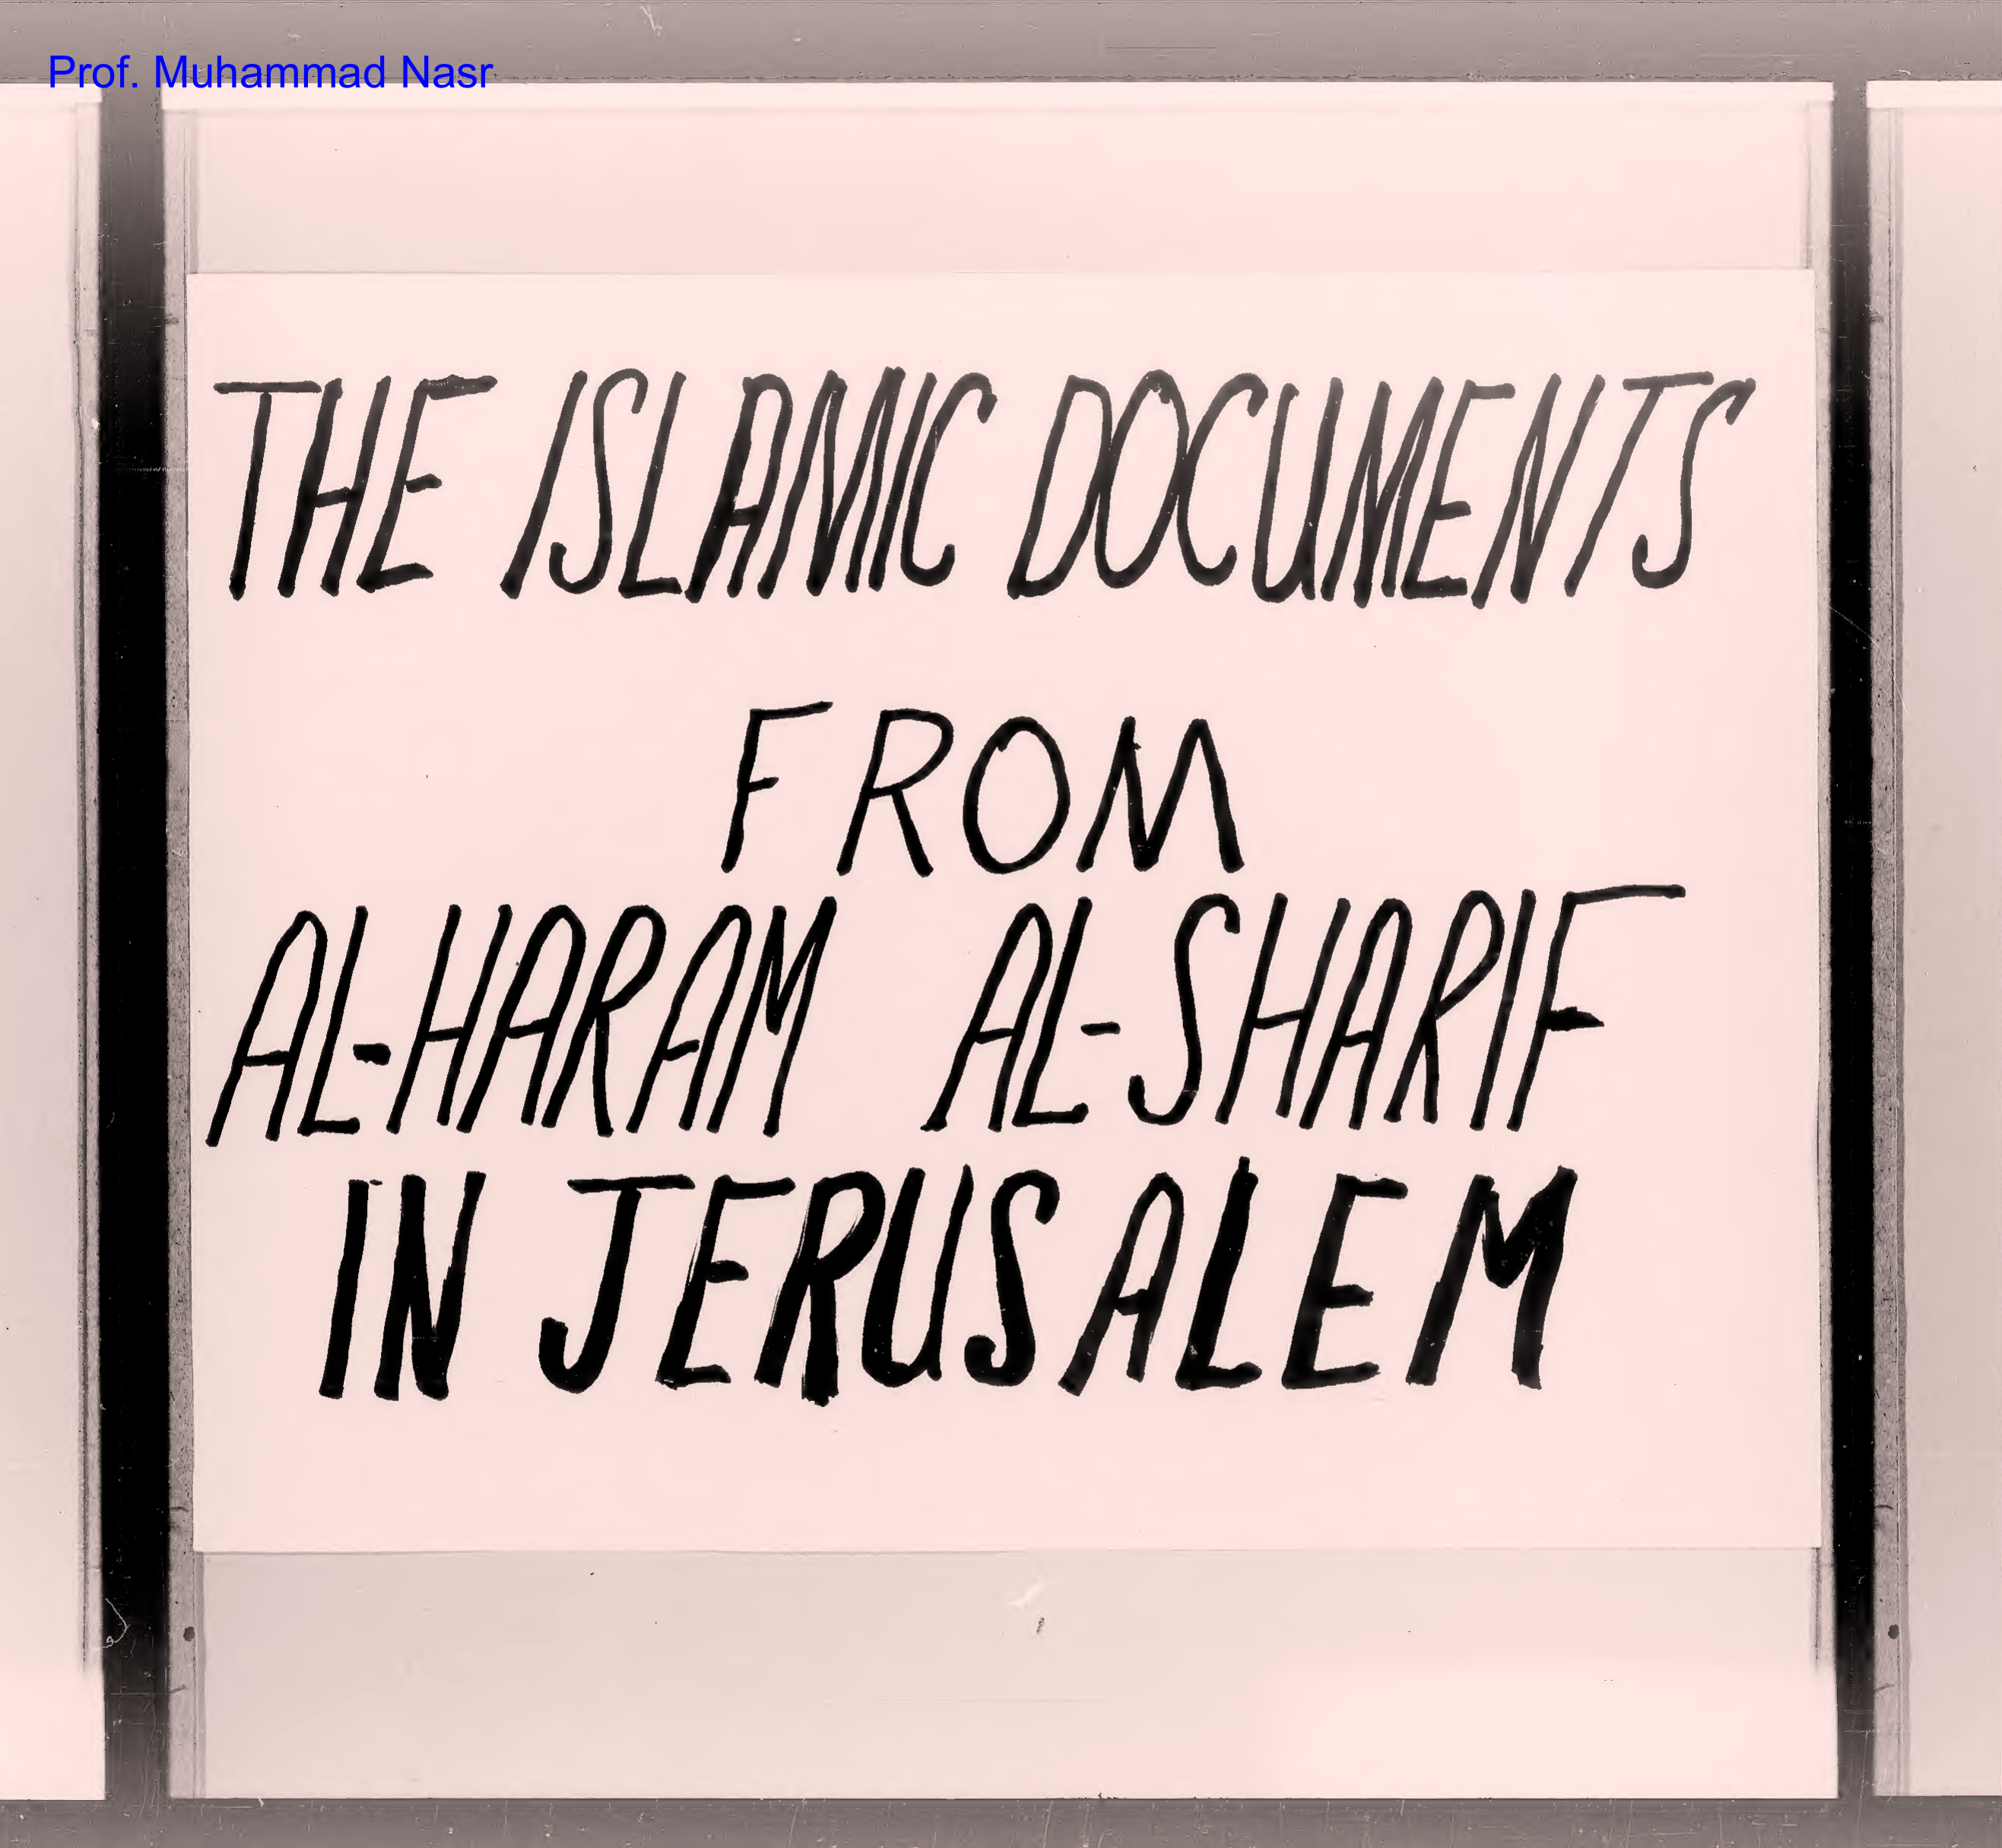 Prof. Muhammad Nasr
THE ISLAMIC DOCUMENTS
FROM
AL-HARAM AL-SHARIF
IN JERUSALEM